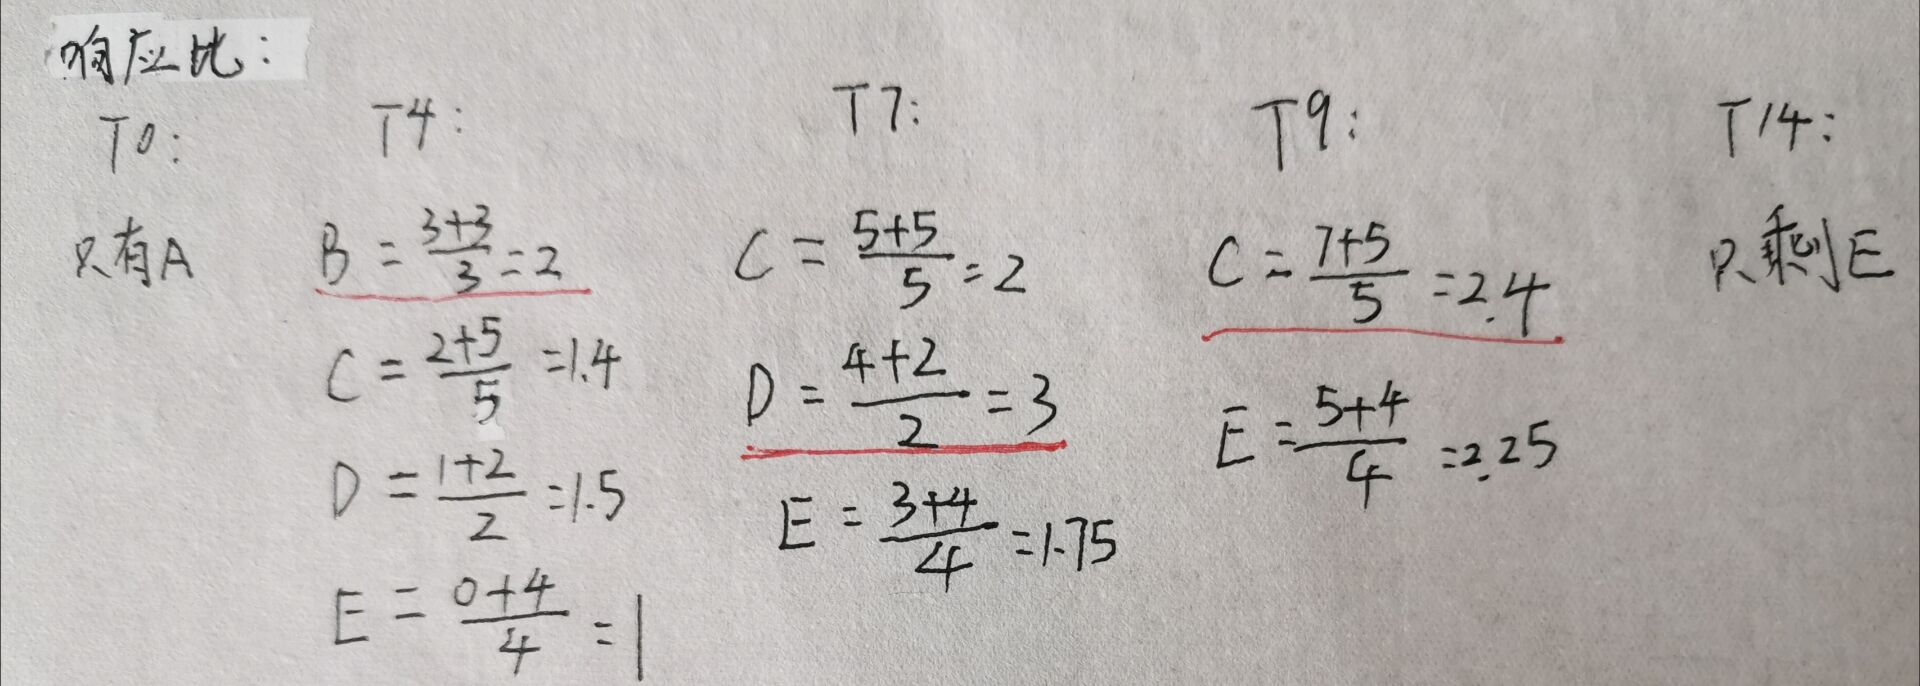 响应比:
T0:
只有A
T4:
B = (3+3)/3 = 2
C = (2+5)/5 = 1.4
D = (1+2)/2 = 1.5
E = (0+4)/4 = 1
T7:
C = (5+5)/5 = 2
D = (4+2)/2 = 3
E = (3+4)/4 = 1.75
T9:
C = (7+5)/5 = 2.4
E = (5+4)/4 = 2.25
T14:
只剩E